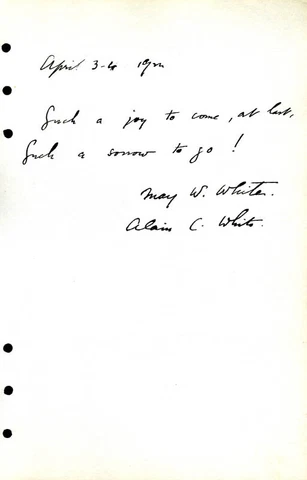 April 3-4 1932
Such a joy to come, at last,
Such a sorrow to go!
May W. White.
Alain C. White.